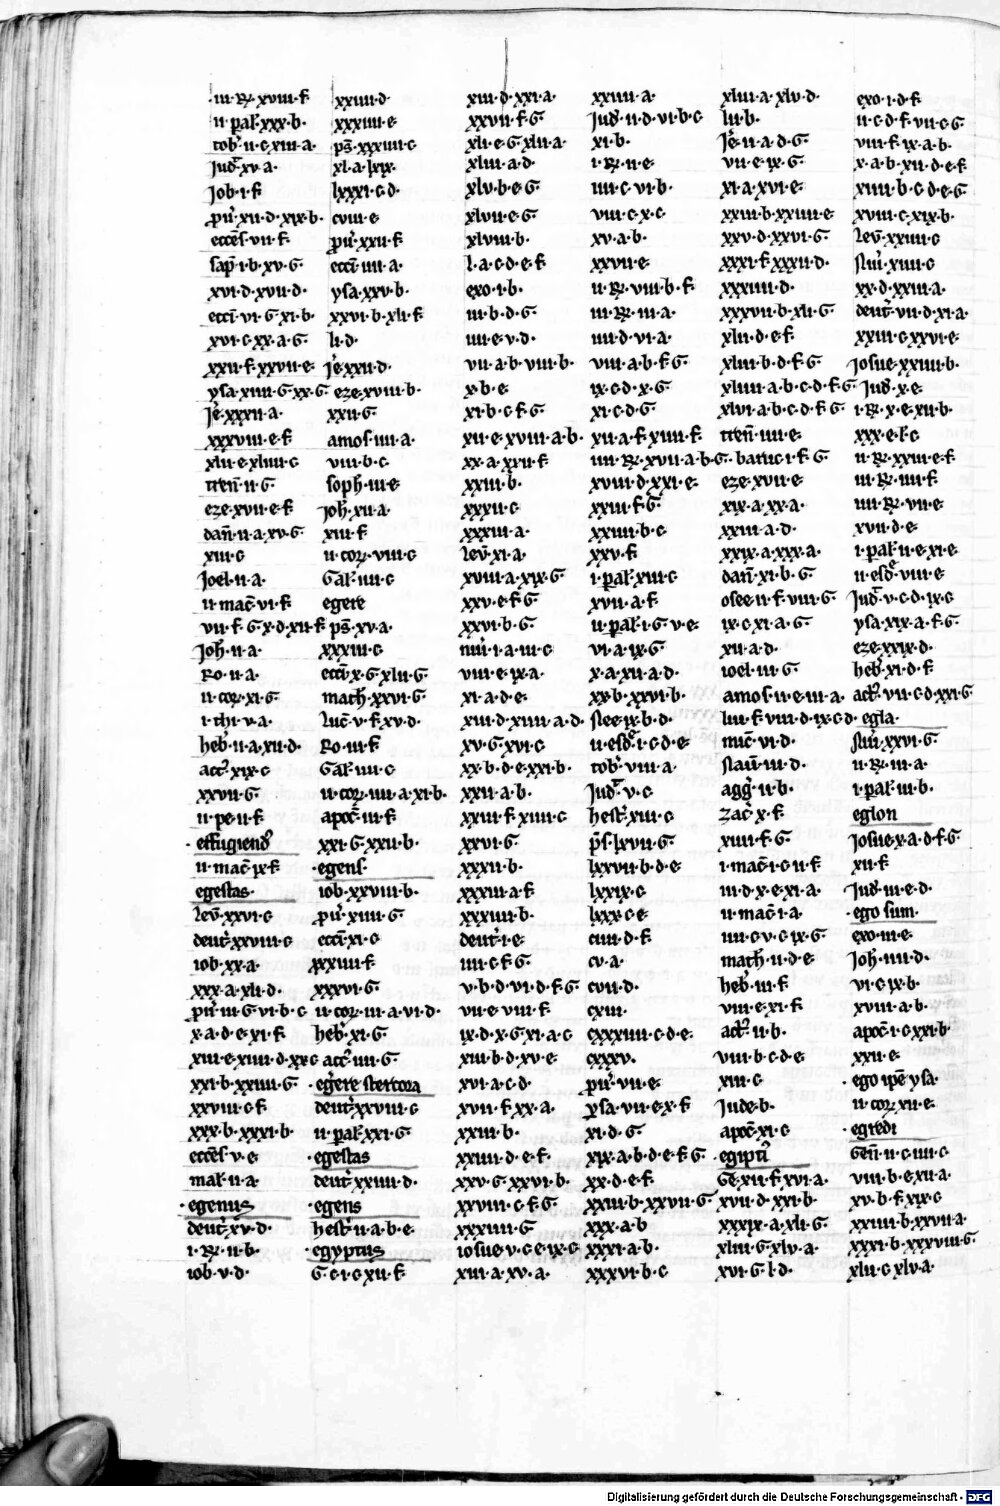 .iii.R.xviii.f
ii.pal.xxx.b.
tob.ii.c.xiii.a.
Jud.xv.a.
Job.i.f
pu.xii.d.xix.b.
eccēs.vii.f.
sap.i.b.xv.G.
xvi.d.xvii.d.
ecci.vi.G.xi.b.
xvi.c.xx.a.G.
xxii.f.xxvii.e
ysa.xiiii.G.xx.G
Je.xxxii.a.
xxxviii.e.f
xlii.e.xliiii.c
treñ.ii.G.
eze.xvii.e.f
dañ.ii.a.xv.G
xiii.c
Joel.ii.a.
ii.mac̄.vi.f
vii.f.G.x.d.xii.f
Joh.ii.a.
Ro.ii.a.
ii.cor.xi.G
i.thi.v.a.
heb.ii.a.xii.d.
act.xix.c
xxvii.G
ii.pe.ii.f
.effugiend
ii.mac̄.ix.f
egestas.
Lev.xxvi.c
deut.xxviii.c
iob.xx.a.
xxx.a.xli.d.
pu.iii.G.vi.b.c
x.a.d.e.xi.f
xiii.e.xiiii.d.xx.c
xxi.b.xxiiii.G
xxviii.c.f
xxx.b.xxxi.b
eccēs.v.e
mal.ii.a
.egenus
deut.xv.d.
i.R.ii.b.
iob.v.d.
xxiiii.d.
xxxiiii.e
ps̄.xxxiiii.c
xl.a.lxix.
lxxxi.c.d.
cviii.e
pu.xxii.f
ecci.iiii.a.
ysa.xxv.b.
xxvi.b.xli.f
li.d.
Je.xxii.d.
eze.xviii.b.
xxii.G
amos.iiii.a.
viii.b.c
soph.iii.e
Joh.xii.a.
xiii.f
ii.cor.viii.c
Gal.iiii.c
egere
ps̄.xv.a.
xxxiii.c
ecci.x.G.xlii.G
math.xxvi.G
Luc.v.f.xv.d.
Ro.iii.f
Gal.iiii.c
ii.cor.iiii.a.xi.b.
apoc.iii.f
xxi.G.xxii.b.
.egens.
iob.xxviii.b.
pu.xiiii.G
ecci.xi.c
xxxiiii.f
xxxvi.G
ii.cor.iii.a.vi.d.
heb.xi.G
act.iiii.G.
.egere stercora
deut.xxviii.c
ii.pal.xxi.G
.egestas
deut.xxviii.d.
.egens
hest.ii.a.b.e
.egyptus
G.c.i.c.xii.f
xiii.d.xxi.a.
xxvii.f.G.
xli.e.G.xlii.a.
xliii.a.d.
xlv.b.e.G.
xlvii.e.G.
xlviii.b.
l.a.c.d.e.f.
exo.i.b.
iii.b.d.G
iiii.e.v.d.
vii.a.b.viii.b.
x.b.e
xi.b.c.f.G.
xii.e.xviii.a.b.
xx.a.xxii.f
xxiii.b.
xxxii.c
xxxiii.a.
Lev.xi.a
xviii.a.xix.G
xxv.e.f.G
xxvi.b.G
nu.i.a.iii.c
viii.e.ix.a.
xi.a.d.e
xiii.d.xiiii.a.d.
xv.G.xvi.c
xx.b.d.e.xxi.b.
xxii.a.b.
xxiii.f.xiiii.c
xxvi.G
xxxii.b.
xxxiii.a.f
xxxiiii.b.
deut.i.e
iiii.c.f.G
v.b.d.vi.d.f.G
vii.e.viii.f
ix.d.x.G.xi.a.c
xiii.b.d.xv.e
xvi.a.c.d.
xvii.f.xx.a.
xxiii.b.
xxiiii.d.e.f.
xxv.G.xxvi.b.
xxviii.c.f.G.
xxxiiii.G
iosue.v.c.e.ix.c
xiii.a.xv.a.
xxiiii.a.
Jud.ii.d.vi.b.c
xi.b.
i.R.ii.e.
iiii.c.vi.b.
viii.c.x.c
xv.a.b.
xxvii.e
ii.R.viii.b.f
iii.R.iii.a.
iii.d.vi.a.
viii.a.b.f.G
ix.c.d.x.G
xi.c.d.G
xii.a.f.xiiii.f
iiii.R.xvii.a.b.G.
xviii.d.xxi.e
xxiii.f.G
xxiiii.b.c
xxv.f
i.pal.xiii.c
xvii.a.f
ii.pal.i.G.v.e
vi.a.ix.G
x.a.xii.a.d.
xx.b.xxvi.b.
Nee.ix.b.d.
ii.esd.i.c.d.e
tob.viii.a.
Jud.v.c
hest.xiii.c
ps̄.lxvii.G
lxxvii.b.d.e
lxxix.c
lxxx.c.e
ciiii.d.f
cv.a.
cvii.d.
cxiii.
cxxxiiii.c.d.e
cxxxv.
pu.vii.e
ysa.vii.e.x.f
xi.d.G
xix.a.b.d.e.f.G
xx.d.e.f
xxiii.b.xxvii.G
xxx.a.b
xxxi.a.b.
xxxvi.b.c
xliii.a.xlv.d.
lii.b.
Je.ii.a.d.G
vii.e.ix.G
xi.a.xvi.e
xxiii.b.xxiiii.e
xxv.d.xxvi.G
xxxi.f.xxxii.d.
xxxiiii.d.
xxxvii.b.xli.G
xlii.d.e.f
xliii.b.d.f.G
xliiii.a.b.c.d.f.G
xlvi.a.b.c.d.f.G
treñ.iiii.e
baruc.i.f.G
eze.xvii.e
xix.a.xx.a.
xxiii.a.d.
xxix.a.xxx.a.
dañ.xi.b.G
osee.ii.f.viii.G
ix.c.xi.a.G
xii.a.d.
ioel.iii.G
amos.ii.e.iii.a.
liii.f.viii.d.ix.c.d.
mic.vi.d.
Naū.iii.d.
agg.ii.b.
Zac.x.f.
xiiii.f.G
i.mac̄.i.c.ii.f
iii.d.x.e.xi.a.
ii.mac̄.i.a
iiii.c.v.c.ix.G
math.ii.d.e
heb.iii.f
viii.e.xi.f
act.ii.b.
viii.b.c.d.e
xiii.c
Jude.b.
apoc.xi.c
.egipti
Ge.xii.f.xvi.a.
xvii.d.xxi.b.
xxxix.a.xli.G
xliii.G.xlv.a.
xvi.G.l.d.
exo.i.d.f.
ii.c.d.f.vii.c.G
viii.f.ix.a.b.
x.a.b.xii.d.e.f.
xiiii.b.c.d.e.G
xviii.c.xix.b.
Lev.xxiiii.c
Nu.xiiii.c
xx.d.xxiii.a.
deut.vii.d.xi.a.
xxiii.c.xxvi.e
Josue.xxiiii.b.
Jud.x.e.
i.R.x.e.xii.b.
xxx.e.f.c
ii.R.xxiii.e.f
iii.R.iiii.f
iiii.R.vii.e
xvii.d.e
i.pal.ii.e.xi.e
ii.esd.viii.e
Jud.v.c.d.ix.c
ysa.xix.a.f.G.
eze.xxix.d.
heb.xi.d.f
act.vii.c.d.xxi.G
egla.
Nu.xxvi.G
ii.R.iii.a.
i.pal.iii.b.
eglon
Josue.x.a.d.f.G
xii.f
Jud.iii.e.d.
.ego sum.
exo.iii.e
Joh.iiii.d.
vi.c.ix.b.
xviii.a.b.
apoc.i.c.xxi.b
xxii.e
.ego ipe ysa.
ii.cor.xii.e
.egredi
Gen.ii.c.iiii.c
viii.b.e.xii.a
xv.b.f.xix.c
xxiiii.b.xxvii.a
xxxi.b.xxxviii.G
xlii.c.xlv.a.
Digitalisierung gefördert durch die Deutsche Forschungsgemeinschaft - DFG